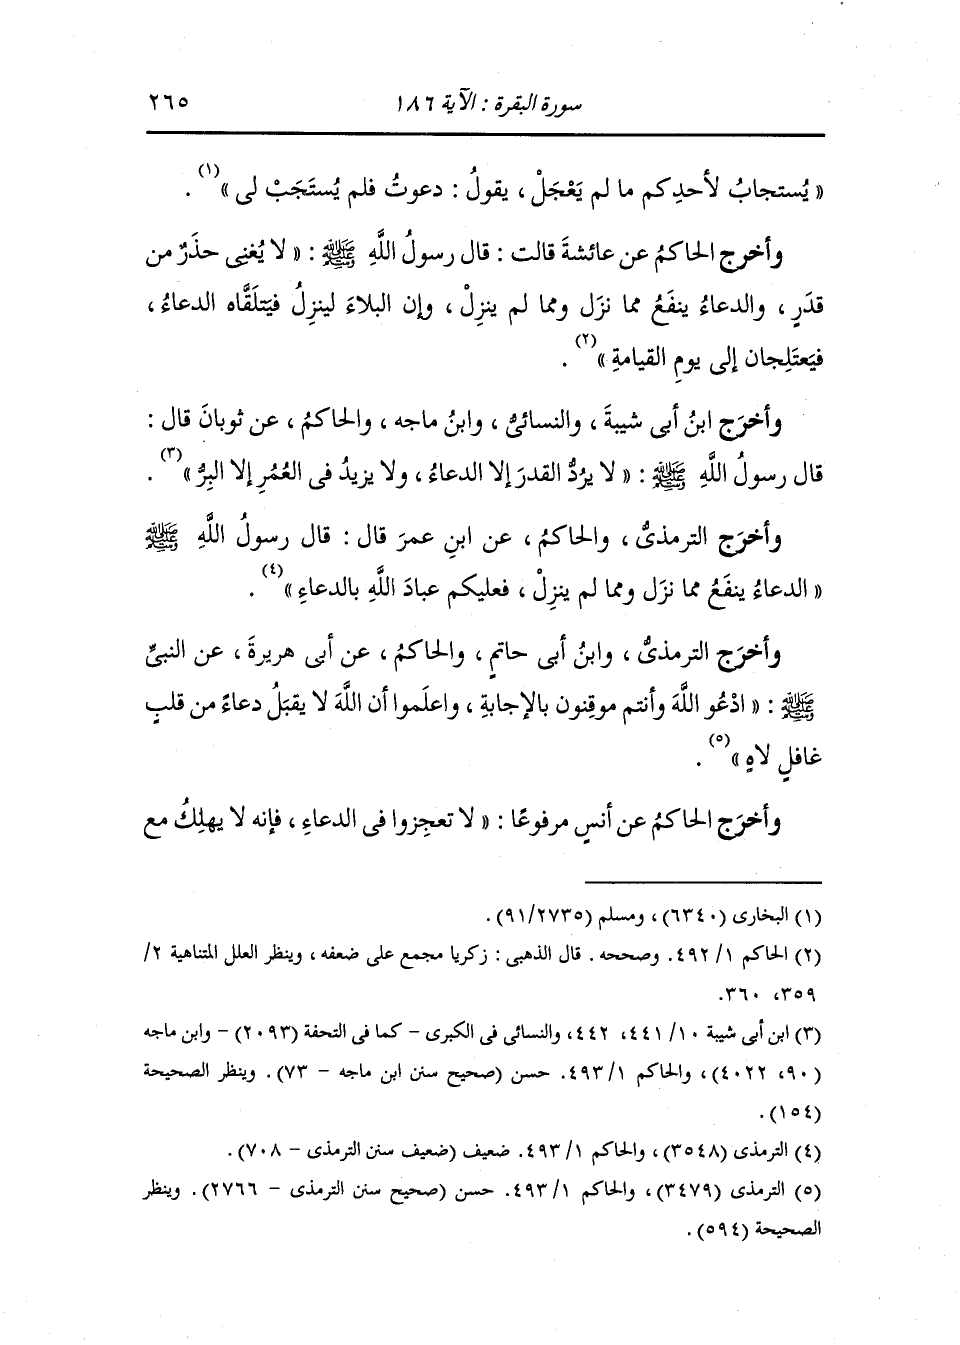 سورة البقرة : الآية ١٨٦ ٢٦٥
« يُستجابُ لأحدِكم ما لم يَعْجَلْ ، يقولُ : دعوتُ فلم يُستَجَبْ لى »(١) .
وأخرج الحاكمُ عن عائشةَ قالت : قال رسولُ اللَّهِ ﷺ : « لا يُغنِى حذَرٌ من
قدَرٍ ، والدعاءُ ينفَعُ مما نزَل ومما لم ينزِلْ ، وإن البلاءَ لينزِلُ فيَتلَقَّاه الدعاءُ ،
فيَعتَلِجان إلى يومِ القيامةِ »(٢) .
وأخرَج ابنُ أبى شيبةَ ، والنسائىُّ ، وابنُ ماجه ، والحاكمُ ، عن ثوبانَ قال :
قال رسولُ اللَّهِ ﷺ : « لا يرُدُّ القدَرَ إلا الدعاءُ ، ولا يزيدُ فى العُمُرِ إلا البِرُّ »(٣) .
وأخرَج الترمذىُّ ، والحاكمُ ، عن ابنِ عمرَ قال : قال رسولُ اللَّهِ ﷺ
« الدعاءُ ينفَعُ مما نزَل ومما لم ينزِلْ ، فعليكم عبادَ اللَّهِ بالدعاءِ »(٤) .
وأخرَج الترمذىُّ ، وابنُ أبى حاتمٍ ، والحاكمُ ، عن أبى هريرةَ ، عن النبىِّ
ﷺ : « ادْعُو اللَّهَ وأنتم موقِنون بالإجابةِ ، واعلَموا أن اللَّهَ لا يقبَلُ دعاءً من قلبٍ
غافلٍ لاهٍ »(٥) .
وأخرَج الحاكمُ عن أنسٍ مرفوعًا : « لا تعجِزوا فى الدعاءِ ، فإنه لا يهلِكُ مع
(١) البخارى (٦٣٤٠) ، ومسلم (٩١/٢٧٣٥) .
(٢) الحاكم ١/ ٤٩٢. وصححه . قال الذهبى : زكريا مجمع على ضعفه ، وينظر العلل المتناهية ٢/
٣٥٩، ٣٦٠.
(٣) ابن أبى شيبة ١٠/ ٤٤١، ٤٤٢، والنسائى فى الكبرى - كما فى التحفة (٢٠٩٣) - وابن ماجه
(٩٠، ٤٠٢٢) ، والحاكم ١/ ٤٩٣. حسن (صحيح سنن ابن ماجه - ٧٣) . وينظر الصحيحة
(١٥٤) .
(٤) الترمذى (٣٥٤٨) ، والحاكم ١/ ٤٩٣. ضعيف (ضعيف سنن الترمذى - ٧٠٨) .
(٥) الترمذى (٣٤٧٩) ، والحاكم ١/ ٤٩٣. حسن (صحيح سنن الترمذى - ٢٧٦٦) . وينظر
الصحيحة (٥٩٤) .